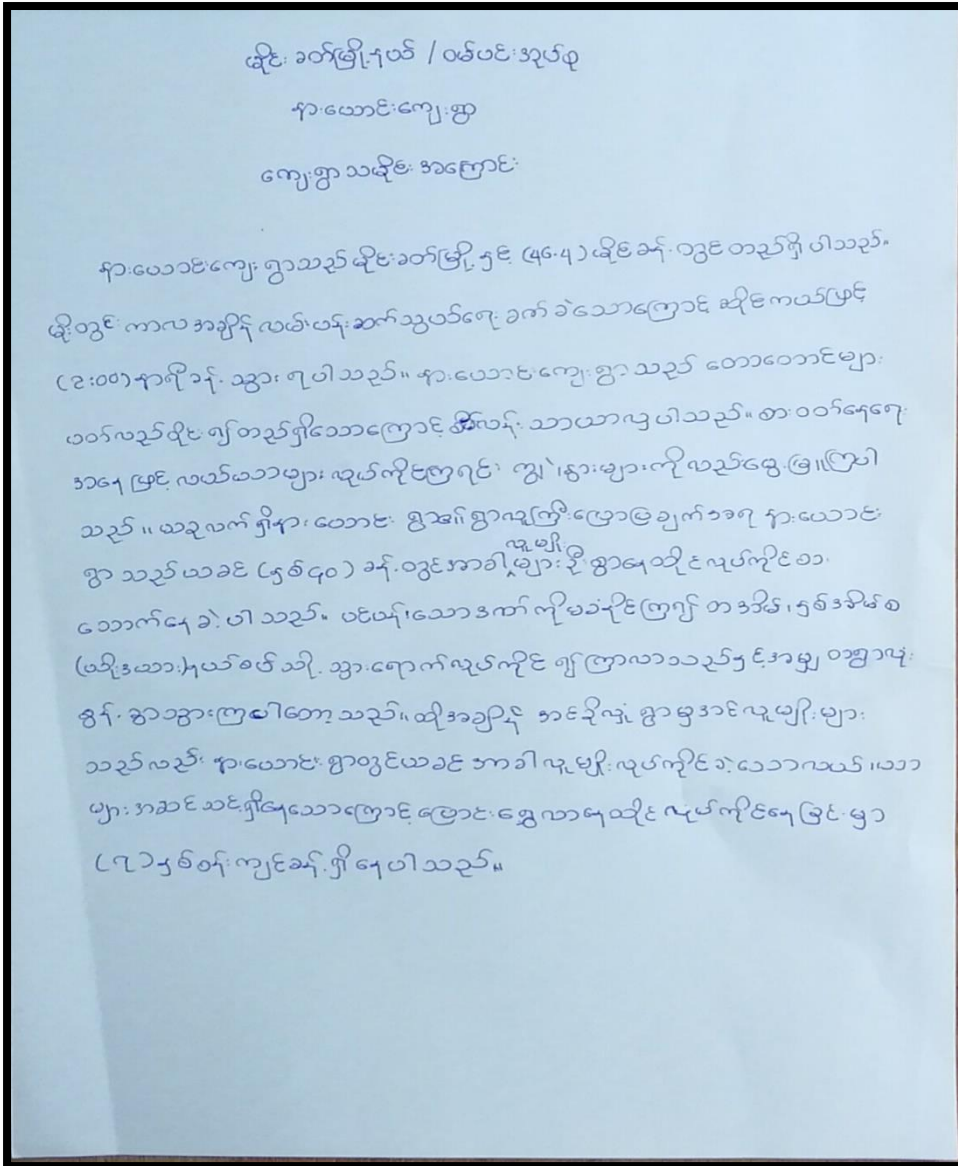 မိုင်းခတ်မြို့နယ် / ဝမ်ပင်းအုပ်စု
နားယောင်းကျေးရွာ
ကျေးရွာသမိုင်းအကြောင်း
နားယောင်းကျေးရွာသည် မိုင်းခတ်မြို့နှင့် (၄၆.၄) မိုင်ခန့်တွင်တည်ရှိပါသည်။
မိုးတွင်းကာလအချိန် လမ်းပန်းဆက်သွယ်ရေးခက်ခဲသောကြောင့် ဆိုင်ကယ်ဖြင့်
(၃:၀၀) နာရီခန့်သွားရပါသည်။ နားယောင်းကျေးရွာသည် တောတောင်များ
ပတ်လည်ဝိုင်း၍တည်ရှိသောကြောင့် စိမ်းလန်းသာယာလှပါသည်။ စားဝတ်နေရေး
အနေဖြင့် လယ်ယာများလုပ်ကိုင်ကြရင်း ကျွဲ၊နွားများကိုလည်းမွေးမြူကြပါ
သည်။ ယခုလက်ရှိနားယောင်းရွာ၏ရွာလူကြီးပြောပြချက်အရ နားယောင်း
ရွာသည်ယခင် (နှစ်၄၀) ခန့်တွင်အာခါလူမျိုးများဦးစွာနေထိုင်လုပ်ကိုင်စား
သောက်နေခဲ့ပါသည်။ ပင်ပန်းသောဒဏ်ကိုမခံနိုင်ကြ၍ တအိမ်၊နှစ်အိမ်စ
(ယိုးဒယား)နယ်စပ်သို့သွားရောက်လုပ်ကိုင်၍ကြာလာသည်နှင့်အမျှ တရွာလုံး
စွန့်ခွာသွားကြပါတော့သည်။ ထိုအချိန် ရွာမှအင်လူမျိုးများ
သည်လည်း နားယောင်းရွာတွင်ယခင်အာခါလူမျိုးလုပ်ကိုင်ခဲ့သောလယ်၊ယာ
များအဆင်သင့်ရှိနေသောကြောင့် ပြောင်းရွှေ့လာနေထိုင်လုပ်ကိုင်နေခြင်းမှာ
(၇)နှစ်ဝန်းကျင်ခန့်ရှိနေပါသည်။